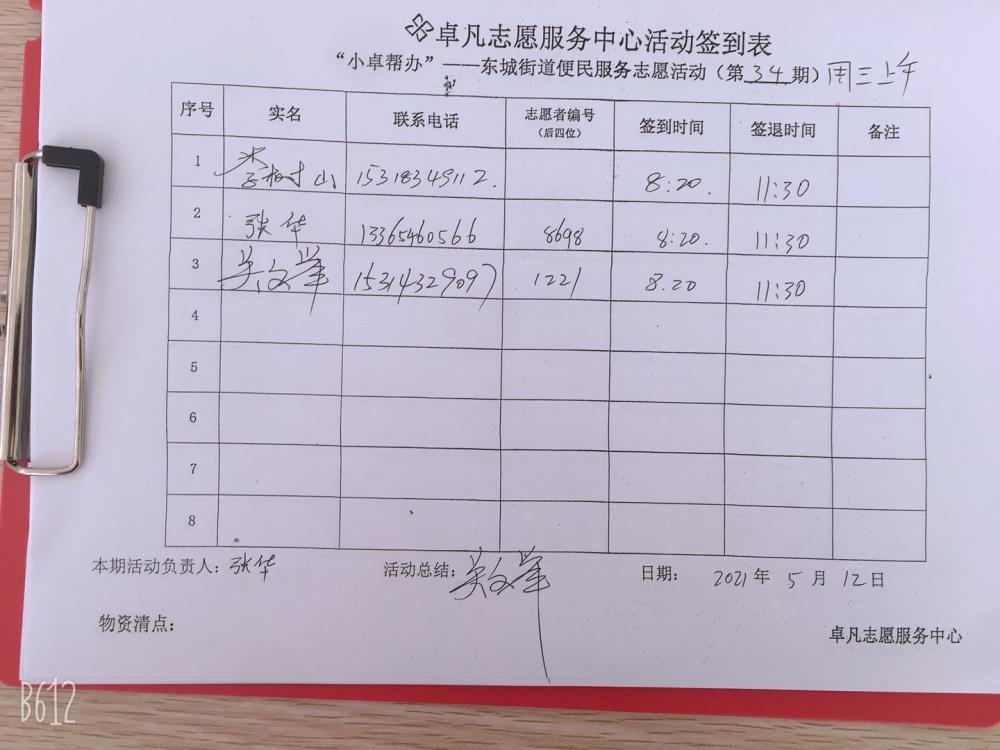 卓凡志愿服务中心活动签到表
“小卓帮办”——东城街道便民服务志愿活动（第34期）周三上午
序号 实名 联系电话 志愿者编号（后四位） 签到时间 签退时间 备注
1 李树山 15318349112. 8:20. 11:30
2 张华 13365460566 8698 8:20. 11:30
3 吴文举 15314329097 1221 8.20 11:30
4
5
6
7
8
本期活动负责人：张华 活动总结：吴文举 日期： 2021年 5月 12日
物资清点：
卓凡志愿服务中心
B612